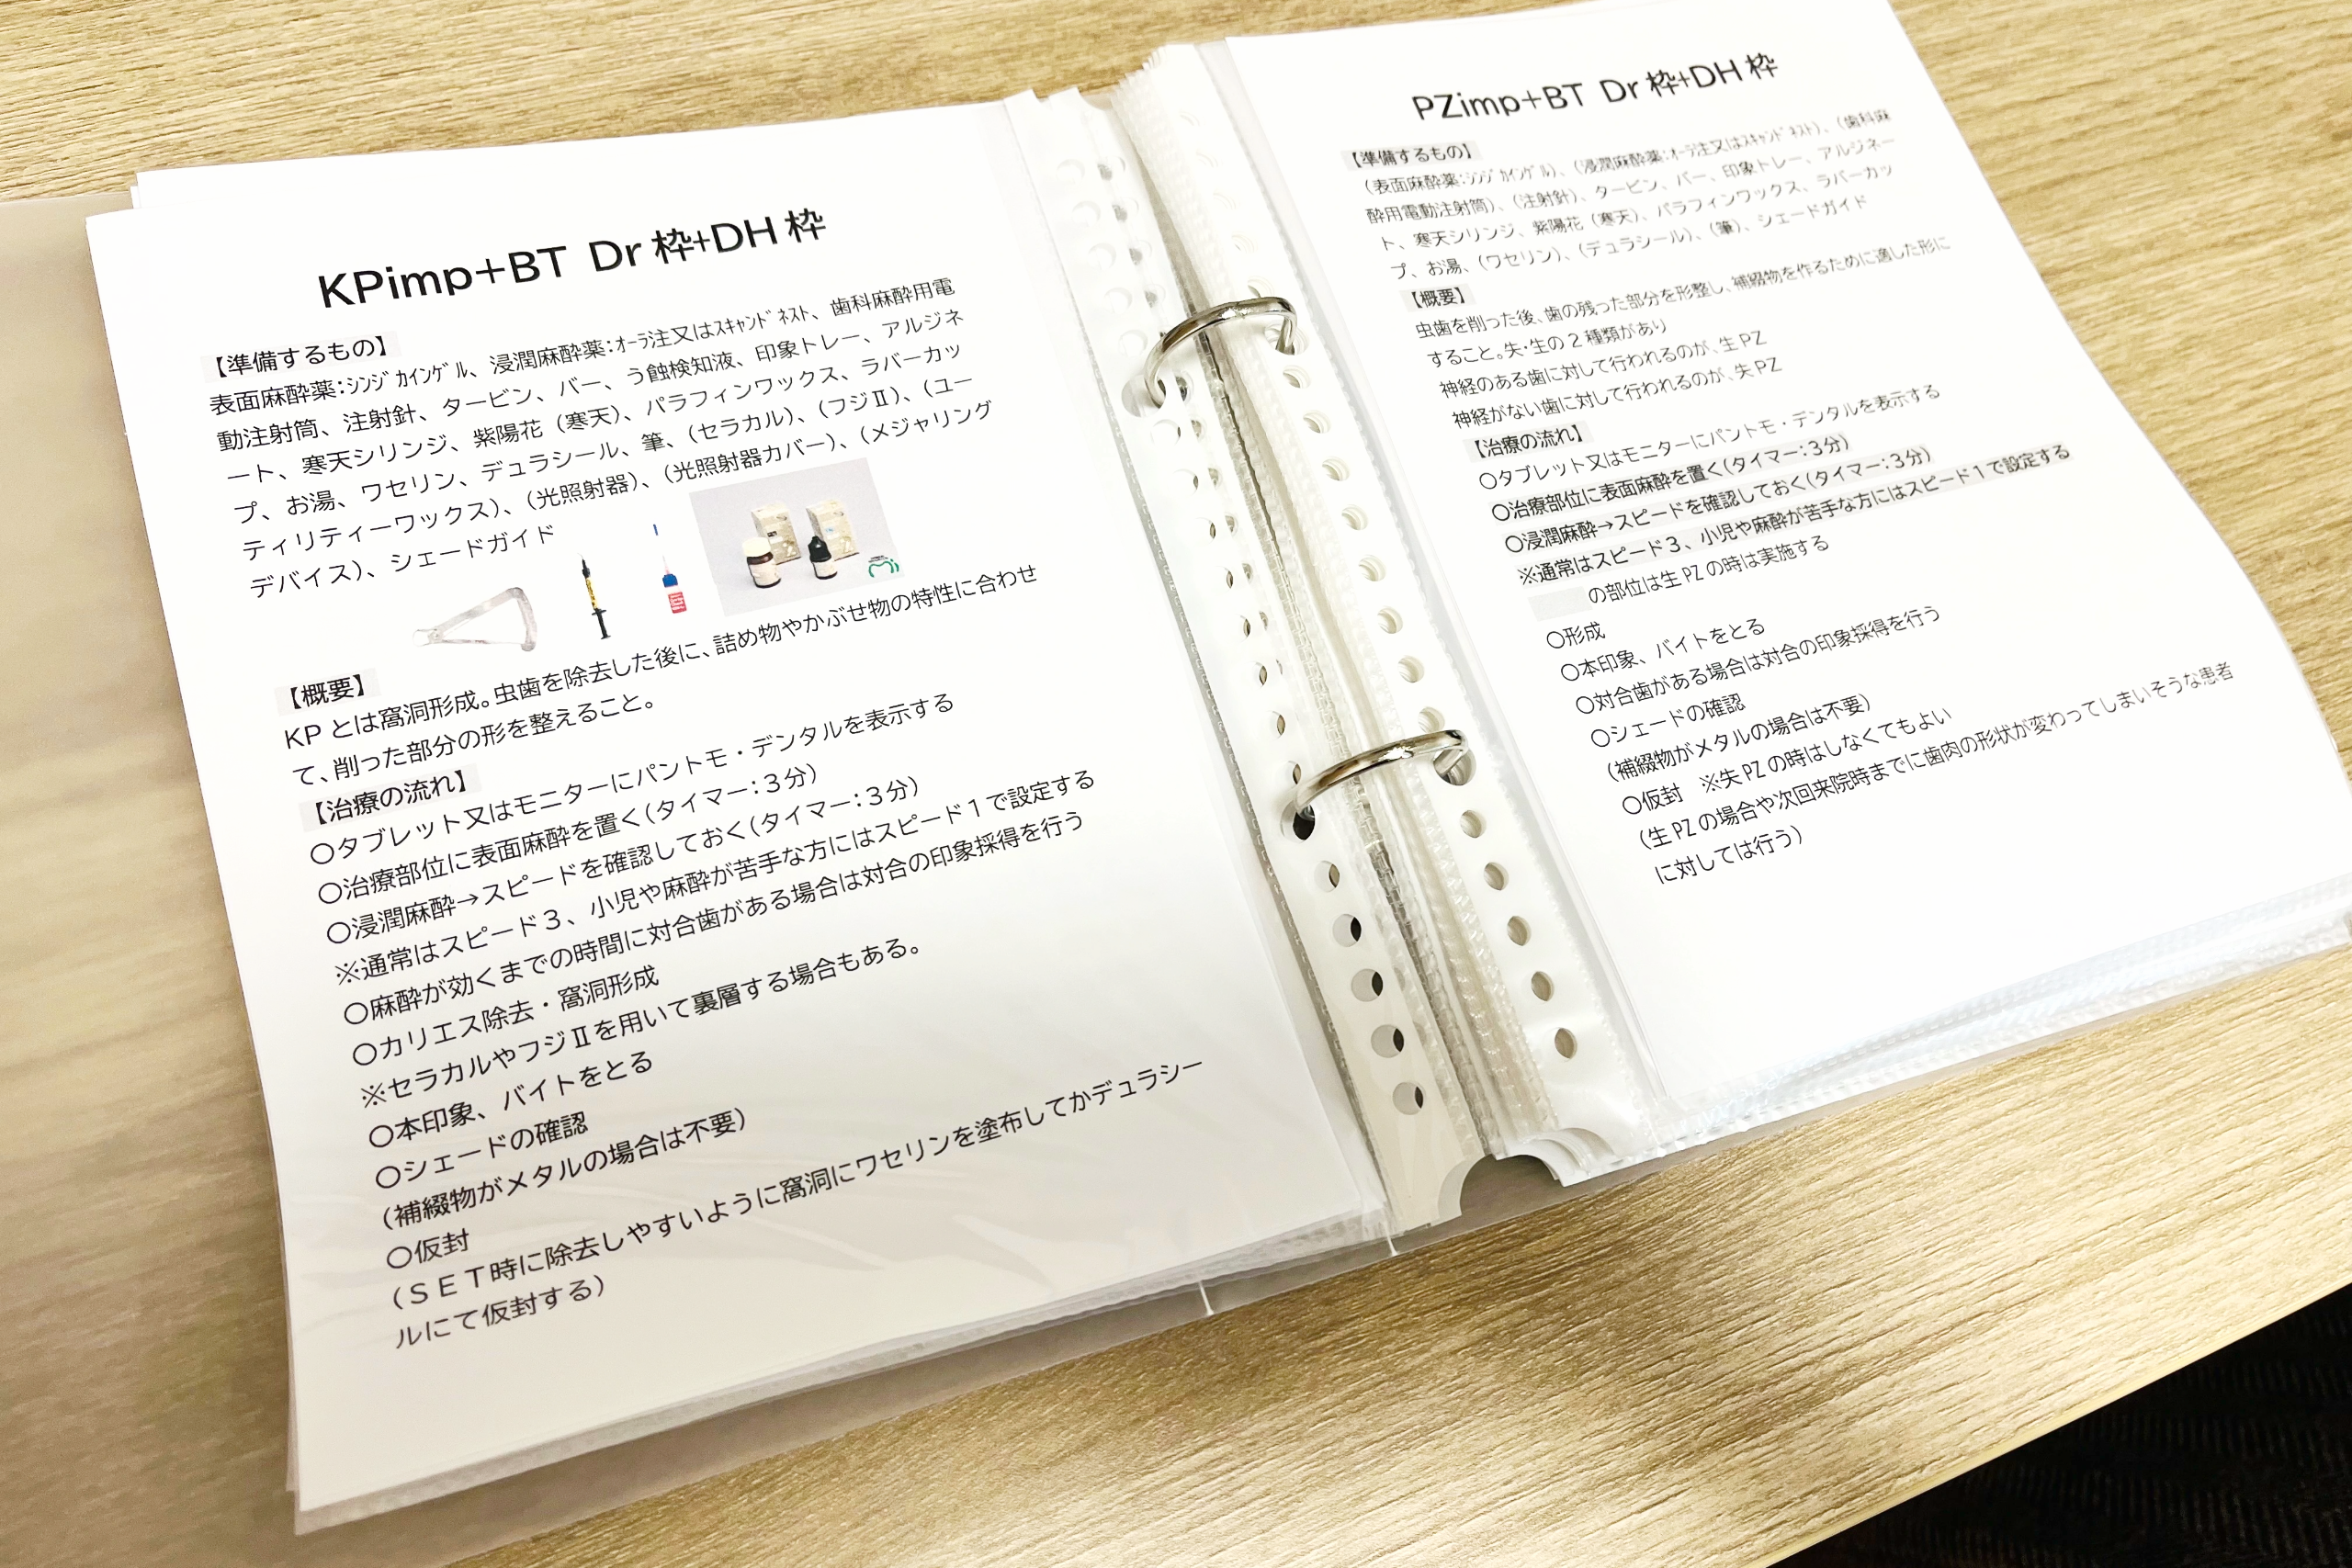 KPimp+BT Dr 枠+DH 枠
【準備するもの】
表面麻酔薬:ｼﾝｼﾞｶｲﾝｹﾞﾙ、浸潤麻酔薬:ｵｰﾗ注又はｽｷｬﾝﾄﾞﾈｽﾄ、歯科麻酔用電
動注射筒、注射針、タービン、バー、う蝕検知液、印象トレー、アルジネ
ート、寒天シリンジ、紫陽花（寒天）、パラフィンワックス、ラバーカッ
プ、お湯、ワセリン、デュラシール、筆、（セラカル）、（フジⅡ）、（ユー
ティリティーワックス）、（光照射器）、（光照射器カバー）、（メジャリング
デバイス）、シェードガイド
【概要】
KP とは窩洞形成。虫歯を除去した後に、詰め物やかぶせ物の特性に合わせ
て、削った部分の形を整えること。
【治療の流れ】
〇タブレット又はモニターにパントモ・デンタルを表示する
〇治療部位に表面麻酔を置く（タイマー：３分）
〇浸潤麻酔→スピードを確認しておく（タイマー：３分）
※通常はスピード３、小児や麻酔が苦手な方にはスピード１で設定する
〇麻酔が効くまでの時間に対合歯がある場合は対合の印象採得を行う
〇カリエス除去・窩洞形成
※セラカルやフジⅡを用いて裏層する場合もある。
〇本印象、バイトをとる
〇シェードの確認
（補綴物がメタルの場合は不要）
〇仮封
（ＳＥＴ時に除去しやすいように窩洞にワセリンを塗布してかデュラシー
ルにて仮封する）
PZimp+BT Dr 枠+DH 枠
【準備するもの】
（表面麻酔薬:ｼﾝｼﾞｶｲﾝｹﾞﾙ）、（浸潤麻酔薬:ｵｰﾗ注又はｽｷｬﾝﾄﾞﾈｽﾄ）、（歯科麻
酔用電動注射筒）、（注射針）、タービン、バー、印象トレー、アルジネー
ト、寒天シリンジ、紫陽花（寒天）、パラフィンワックス、ラバーカッ
プ、お湯、（ワセリン）、（デュラシール）、（筆）、シェードガイド
【概要】
虫歯を削った後、歯の残った部分を形整し、補綴物を作るために適した形に
すること。失・生の 2 種類があり
神経のある歯に対して行われるのが、生 PZ
神経がない歯に対して行われるのが、失 PZ
【治療の流れ】
〇タブレット又はモニターにパントモ・デンタルを表示する
〇治療部位に表面麻酔を置く（タイマー：３分）
〇浸潤麻酔→スピードを確認しておく（タイマー：３分）
※通常はスピード３、小児や麻酔が苦手な方にはスピード１で設定する
の部位は生 PZ の時は実施する
〇形成
〇本印象、バイトをとる
〇対合歯がある場合は対合の印象採得を行う
〇シェードの確認
（補綴物がメタルの場合は不要）
〇仮封　※失 PZ の時はしなくてもよい
（生 PZ の場合や次回来院時までに歯肉の形状が変わってしまいそうな患者
に対しては行う）